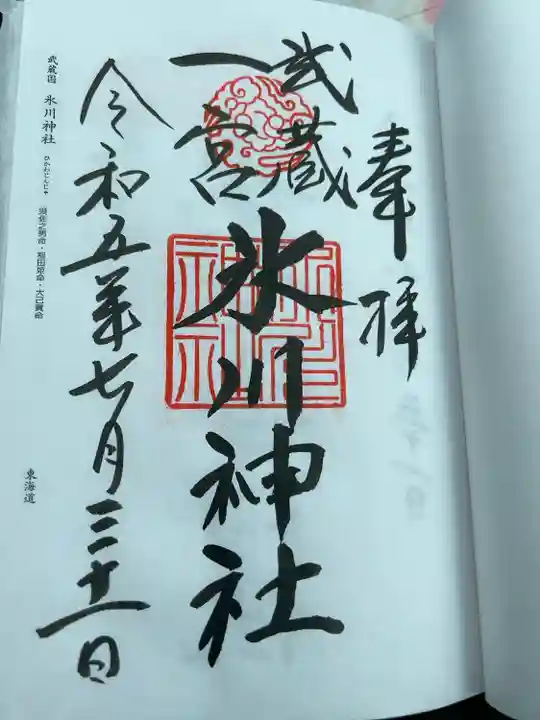 奉拝
武蔵
一宮
氷川神社
令和五年七月三十一日
武蔵国 氷川神社 ひかわじんじゃ 須佐之男命・稲田姫命・大己貴命
東海道